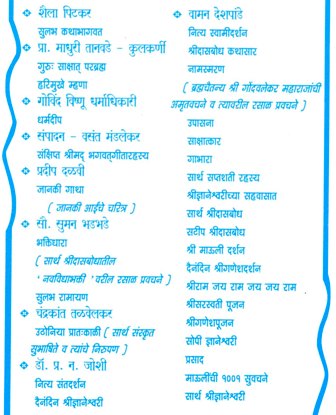 ❖ शैला पिटकर
सुलभ कथाभागवत
❖ प्रा. माधुरी तानवडे - कुलकर्णी
गुरुः साक्षात् परब्रह्म
हरिमुखे म्हणा
❖ गोविंद विष्णू धर्माधिकारी
धर्मदीप
❖ संपादन - वसंत मंडलेकर
संक्षिप्त श्रीमद् भगवत्‌गीतारहस्य
❖ प्रदीप दळवी
जानकी गाथा
( जानकी आईचे चरित्र )
❖ सौ. सुमन भडभडे
भक्तिधारा
( सार्थ श्रीदासबोधातील
'नवविधाभक्ती' वरील रसाळ प्रवचने )
सुलभ रामायण
❖ चंद्रकांत तळवेलकर
उठोनिया प्रातःकाळी ( सार्थ संस्कृत
सुभाषिते व त्यांचे निरुपण )
❖ डॉ. प्र. न. जोशी
नित्य संतदर्शन
दैनंदिन श्रीज्ञानेश्वरी
❖ वामन देशपांडे
नित्य स्वामीदर्शन
श्रीदासबोध कथासार
नामस्मरण
( ब्रह्मचैतन्य श्री गोंदवलेकर महाराजांची
अमृतवचने व त्यावरील रसाळ प्रवचने )
उपासना
साक्षात्कार
गाभारा
सार्थ सप्तशती रहस्य
श्रीज्ञानेश्वरीच्या सहवासात
सार्थ श्रीदासबोध
सटीप श्रीदासबोध
श्री माऊली दर्शन
दैनंदिन श्रीगणेशदर्शन
श्रीराम जय राम जय जय राम
श्रीसरस्वती पूजन
श्रीगणेशपूजन
सोपी ज्ञानेश्वरी
प्रसाद
माऊलींची १००१ सुवचने
सार्थ श्रीज्ञानेश्वरी